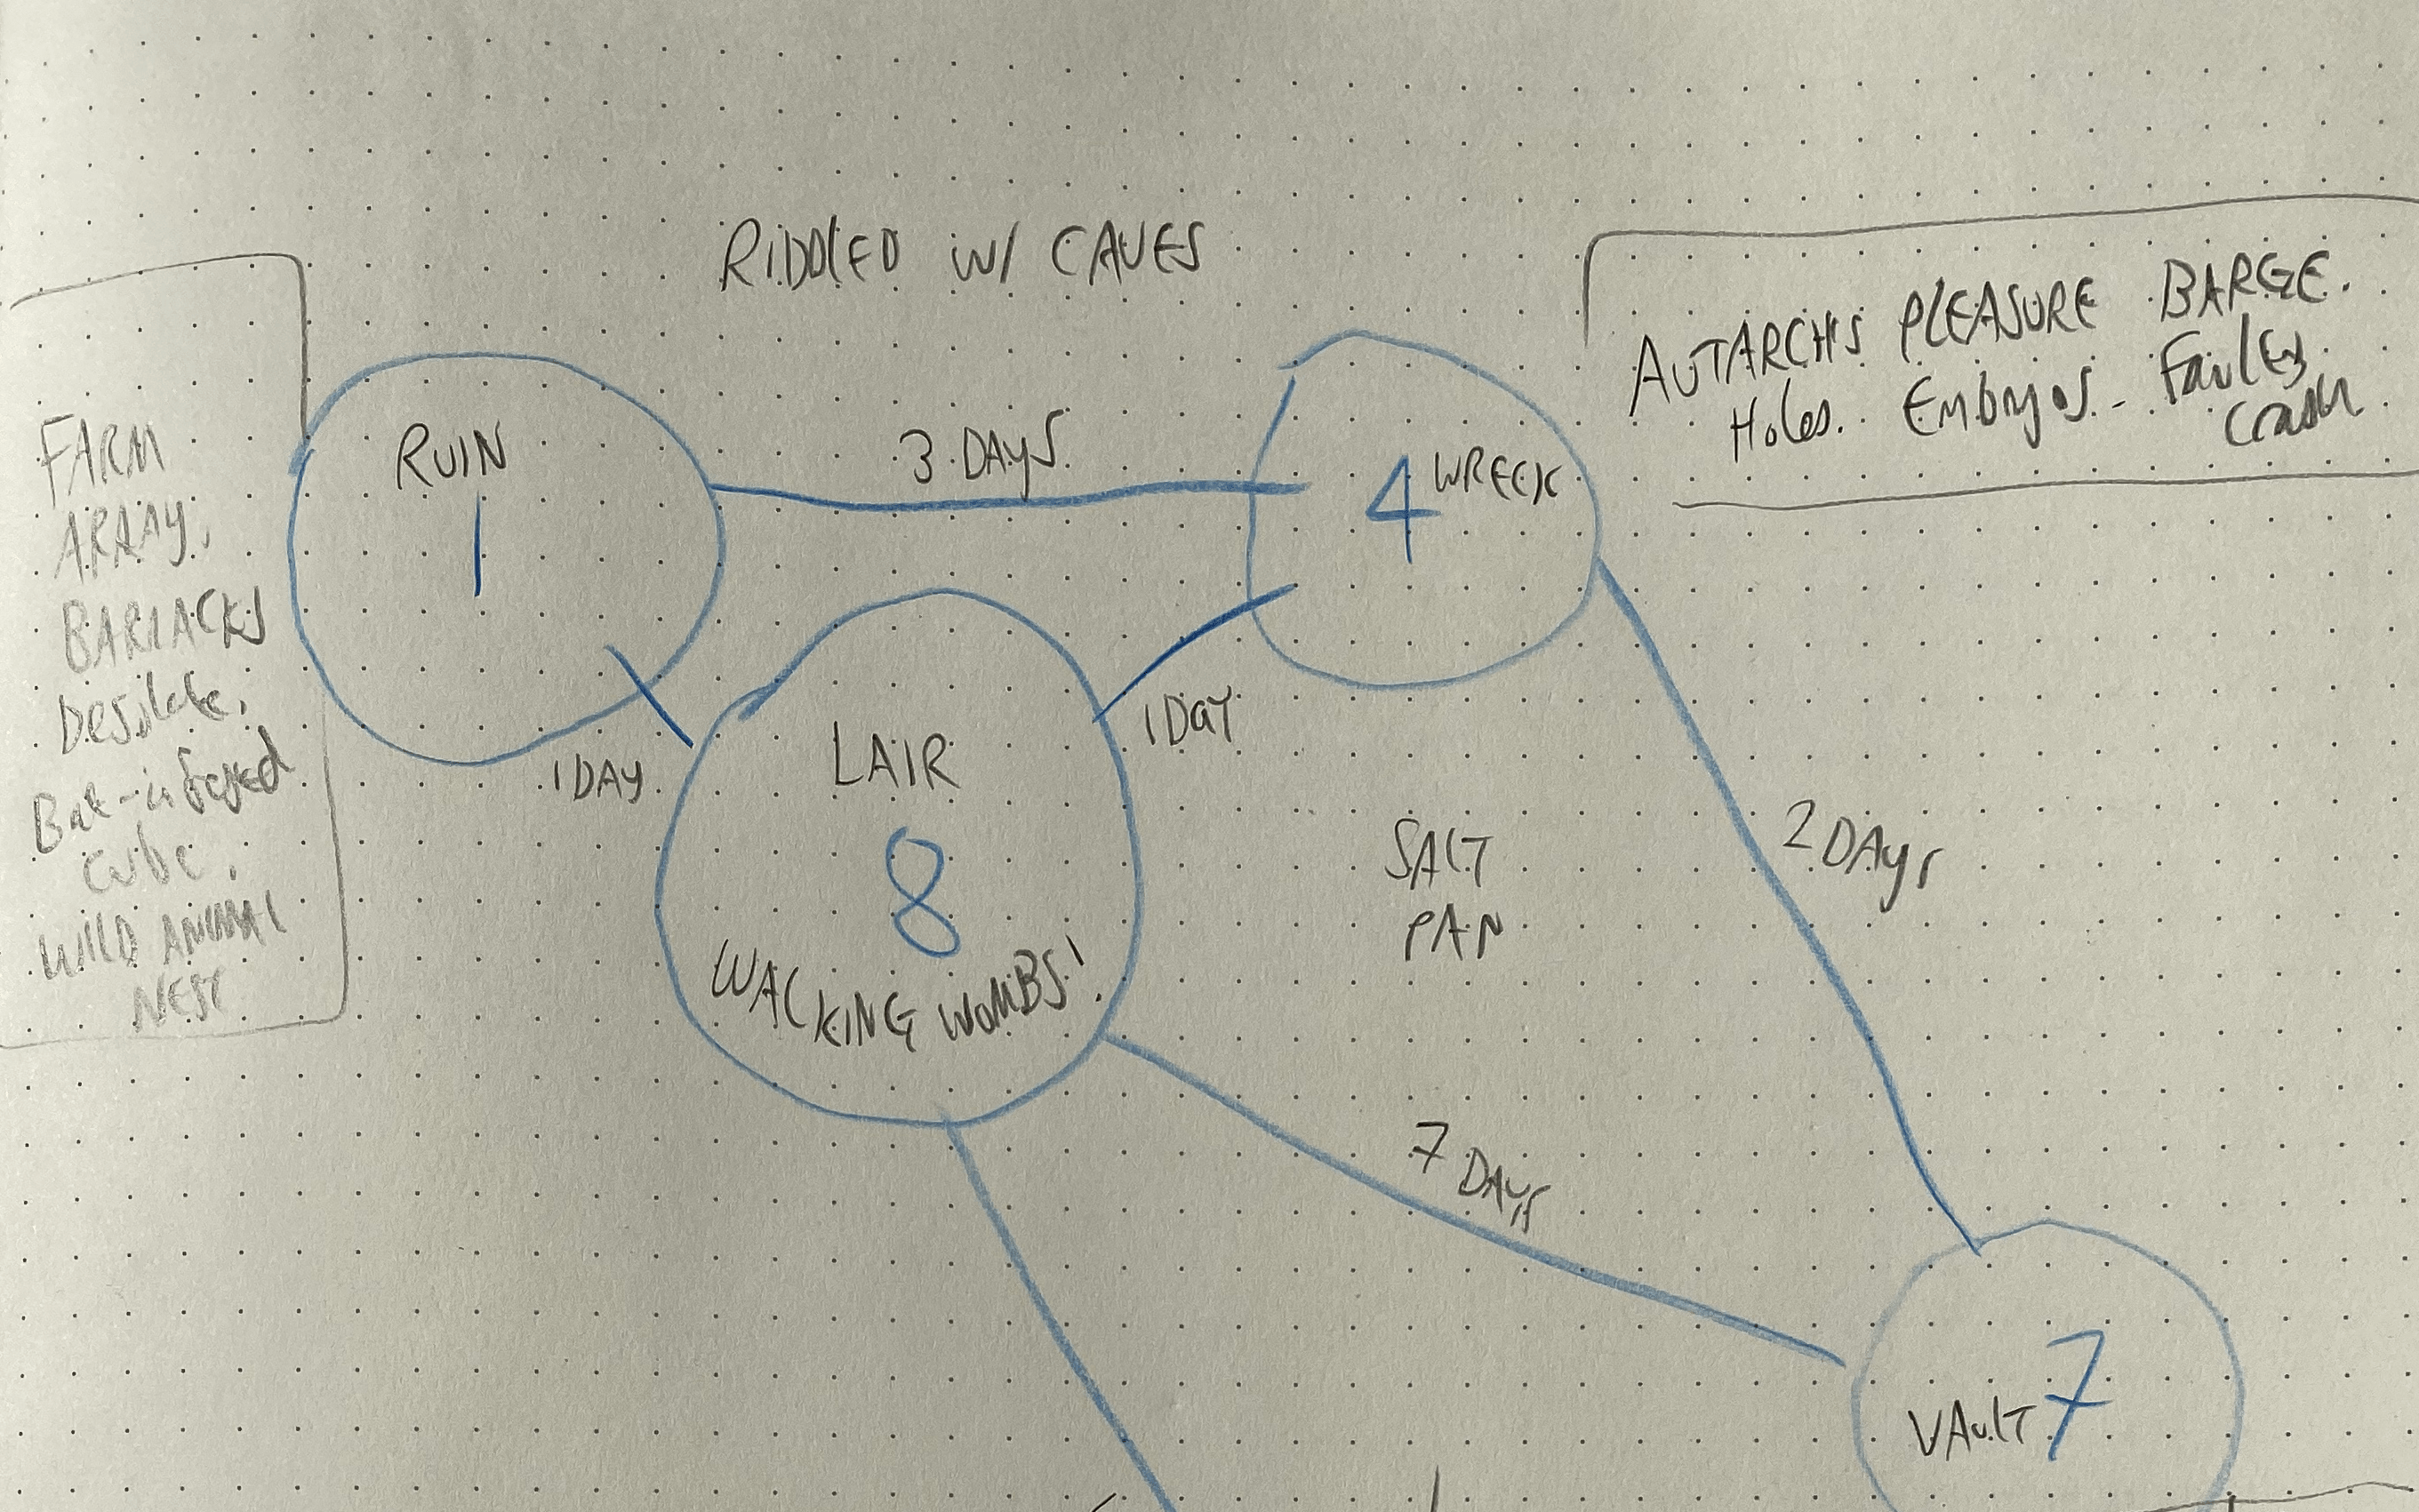 RIDDLED W/ CAVES
AUTARCH'S PLEASURE BARGE.
Holes. Embryos. Failes
Crash
FARM
ARRAY.
BARRACKS
Desolate.
Bat-infested
cube.
WILD ANIMAL
NEST
RUIN
1
3 DAYS
4 WRECK
1 DAY
1 DAY
LAIR
8
WALKING WOMBS!
SALT
PAN
2 DAYS
7 DAYS
VAULT 7